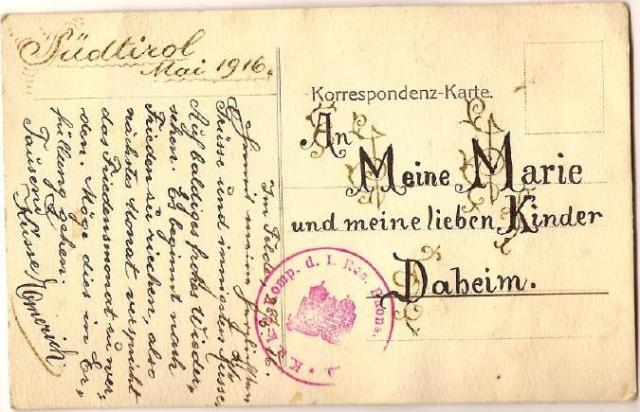 Südtirol
Mai 1916.
Korrespondenz-Karte.
An
Meine Marie
und meine lieben Kinder
Daheim.
Im Felde,
Nimm meine herzlichsten
Grüsse und innigsten Küsse,
Auf baldiges frohes Wieder,
sehen. Es beginnt nach
Frieden zu riechen, also
nächstes Monat verspricht
das Friedensmonat zu wer,
den. Möge dies in Er,
füllung gehen.
Tausend
Küsse
Komp. d. I.